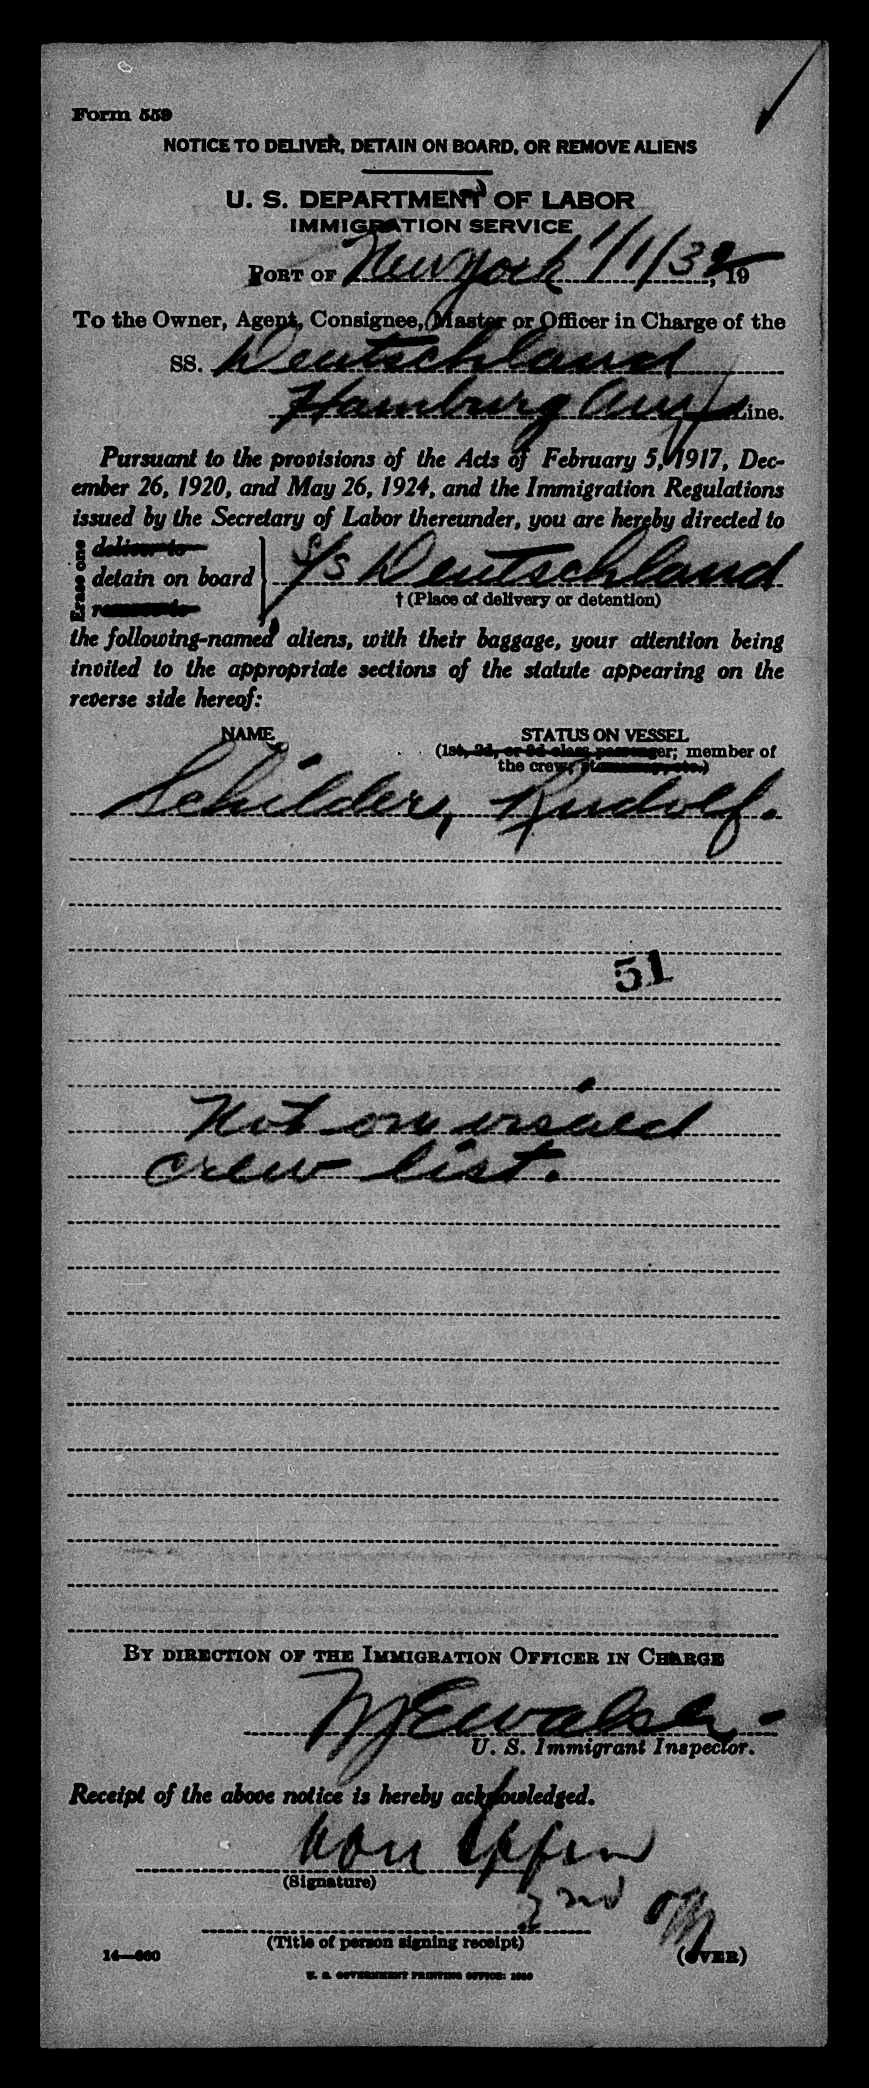 Form 559
NOTICE TO DELIVER, DETAIN ON BOARD, OR REMOVE ALIENS
U. S. DEPARTMENT OF LABOR
IMMIGRATION SERVICE
PORT OF New York 1/1/32, 19
To the Owner, Agent, Consignee, Master or Officer in Charge of the
SS. Deutschland
Hamburg Am Line.
Pursuant to the provisions of the Acts of February 5, 1917, Dec-
ember 26, 1920, and May 26, 1924, and the Immigration Regulations
issued by the Secretary of Labor thereunder, you are hereby directed to
Erase one
deliver to
detain on board } S/S Deutschland
remove to
† (Place of delivery or detention)
the following-named aliens, with their baggage, your attention being
invited to the appropriate sections of the statute appearing on the
reverse side hereof:
NAME STATUS ON VESSEL
(1st, 2d, or 3d class passenger; member of
the crew, stowaway, etc.)
Schilder, Rudolf.
51
Not on visaed
crew list.
BY DIRECTION OF THE IMMIGRATION OFFICER IN CHARGE
U. S. Immigrant Inspector.
Receipt of the above notice is hereby acknowledged.
von
(Signature)
2nd Off
(Title of person signing receipt)
14—660 (OVER)
U. S. GOVERNMENT PRINTING OFFICE: 1930